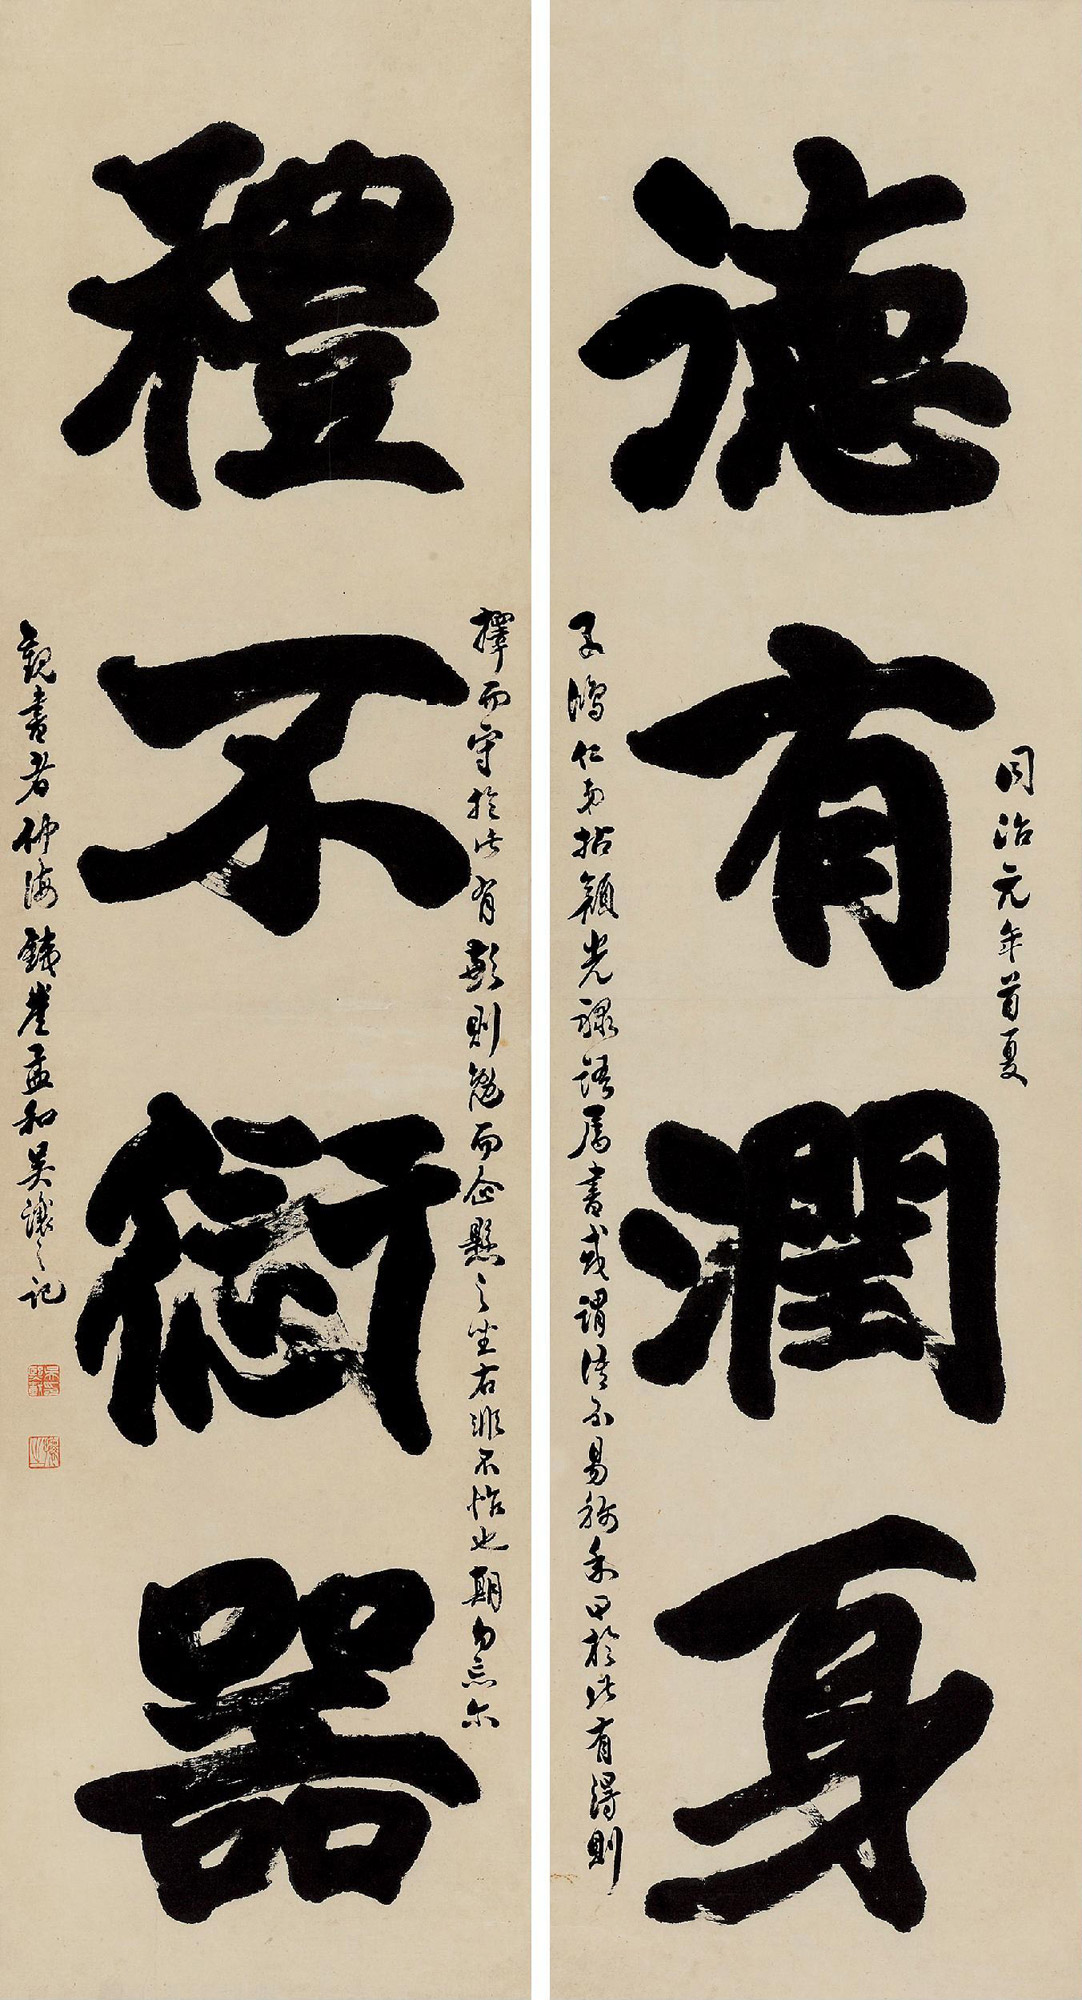 同治元年首夏
德有潤身
子鴻仁弟拈顏光祿語屬書或謂語不易稱余曰於此有得則
擇而守於此有歉則勉而企懸之坐右非不怡也期勿忘尔
禮不愆器
觀書者仲海鐵崖孟和吳讓之記